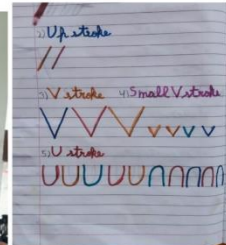 2) Up stroke
//
3) V stroke 4) Small V stroke
V V V v v v v
5) U stroke
U U U U U U ∩ ∩ ∩ ∩ ∩